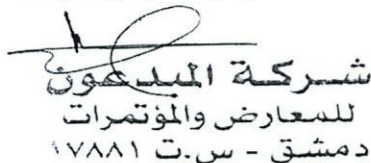 شركة المبدعون
للمعارض والمؤتمرات
دمشق - س.ت ١٧٨٨١